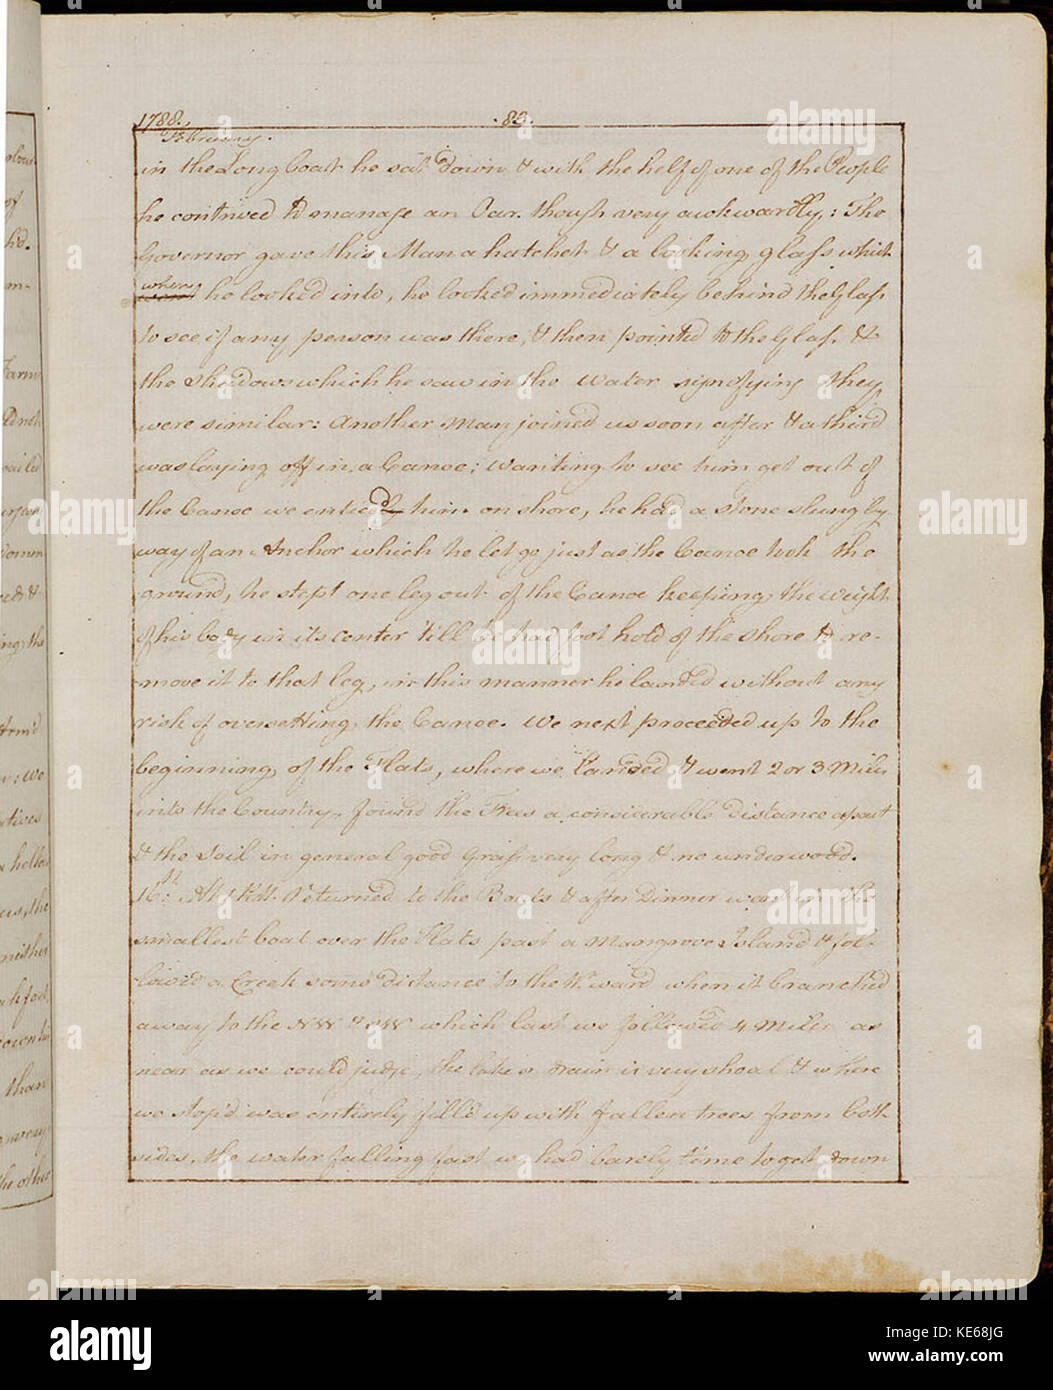 1788. .83.
February.
in the Long boat he sat down & with the help of one of the People
he contrived to manage an Oar. though very awkwardly,: The
Governor gave this Man a hatchet & a looking glass which
when he looked into, he looked immediately behind the Glass
to see if any person was there, & then pointed to the Glass &
the Shadows which he saw in the Water signifying they
were similar: Another Man joined us soon after & a third
was laying off in a Canoe; wanting to see him get out of
the Canoe we enticed him on shore, he had a stone slung by
way of an Anchor which he let go just as the Canoe took the
ground, he stept one leg out of the Canoe keeping the weight
of his body in its center till he had foot hold of the shore to re-
-move it to that leg, in this manner he landed without any
risk of oversetting the Canoe. We next proceeded up to the
beginning of the Flats, where we landed & went 2 or 3 Miles
into the Country, found the Trees a considerable distance apart
& the Soil in general good Grass very long & no underwood.
16th. At 1 P.M. Returned to the Boats & after Dinner went in the
smallest boat over the Flats past a Mangrove Island & fol-
-lowed a Creek some distance to the Wward when it branched
away to the NW & SW which last we followed 4 Miles as
near as we could judge, the lake or drain is very shoal & where
we stop'd was entirely fill'd up with fallen trees from both
sides. the water falling fast we had barely time to get down
alamy
a
Image ID: KE68JG
www.alamy.com